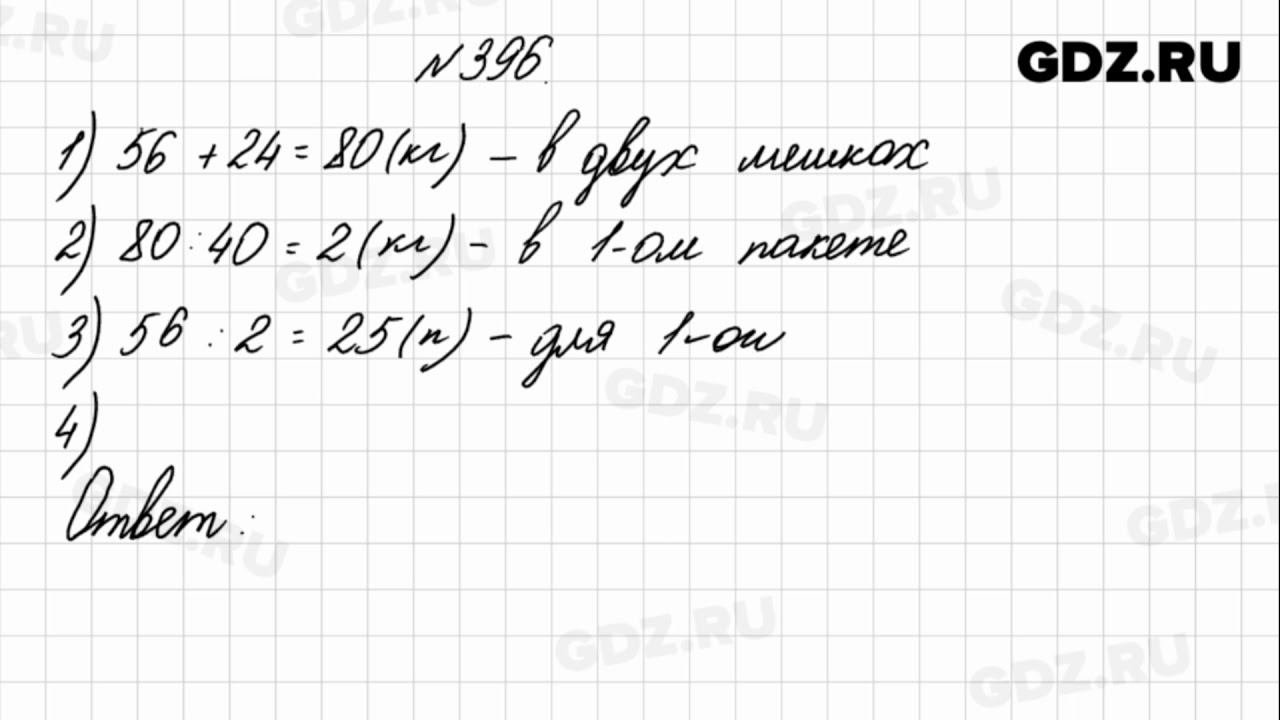 GDZ.RU
№396.
1) 56 + 24 = 80 (кг) - в двух мешках
2) 80 : 40 = 2 (кг) - в 1-ом пакете
3) 56 : 2 = 25 (п) - для 1-ой
4)
Ответ :